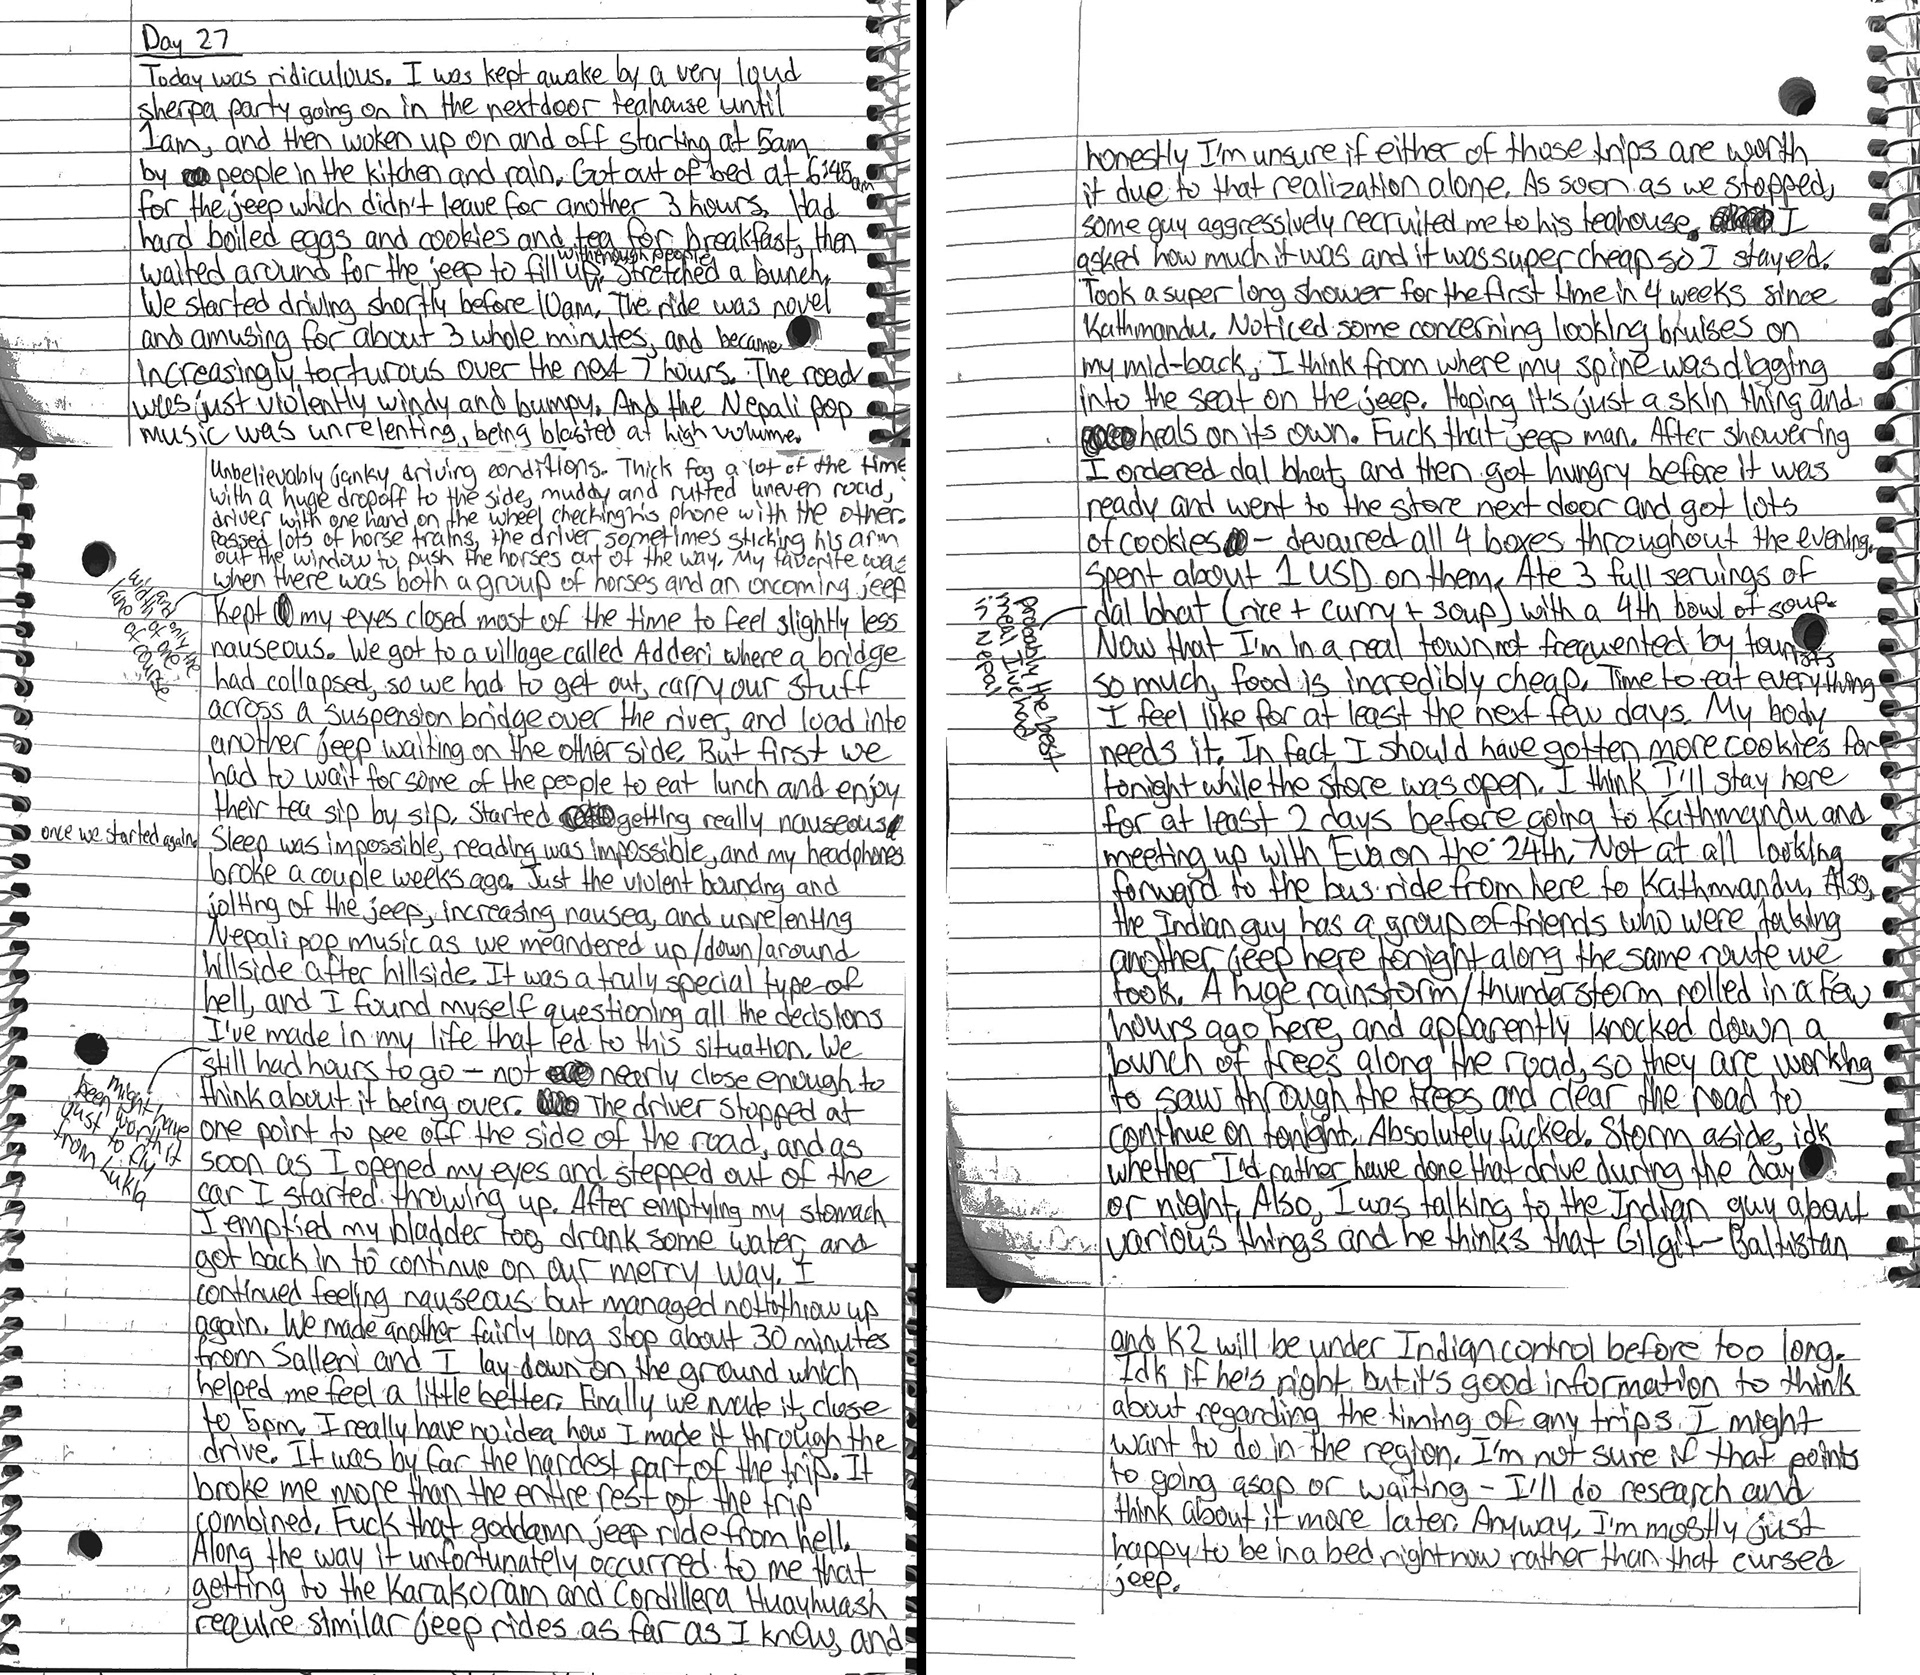 Day 27
Today was ridiculous. I was kept awake by a very loud
sherpa party going on in the nextdoor teahouse until
1am, and then woken up on and off starting at 5am
by people in the kitchen and rain. Got out of bed at 6:45am
for the jeep which didn't leave for another 3 hours. Had
hard boiled eggs and cookies and tea for breakfast, then
with enough people
waited around for the jeep to fill up. Stretched a bunch.
We started driving shortly before 10am. The ride was novel
and amusing for about 3 whole minutes, and became
increasingly torturous over the next 7 hours. The road
was just violently windy and bumpy. And the Nepali pop
music was unrelenting, being blasted at high volume.
Unbelievably janky driving conditions. Thick fog a lot of the time
with a huge dropoff to the side, muddy and rutted uneven road,
driver with one hand on the wheel checking his phone with the other.
Passed lots of horse trains, the driver sometimes sticking his arm
out the window to push the horses out of the way. My favorite was
when there was both a group of horses and an oncoming jeep
Kept my eyes closed most of the time to feel slightly less
nauseous. We got to a village called Adderi where a bridge
had collapsed, so we had to get out, carry our stuff
across a suspension bridge over the river, and load into
another jeep waiting on the other side. But first we
had to wait for some of the people to eat lunch and enjoy
their tea sip by sip. Started getting really nauseous
once we started again.
Sleep was impossible, reading was impossible, and my headphones
broke a couple weeks ago. Just the violent bouncing and
jolting of the jeep, increasing nausea, and unrelenting
Nepali pop music as we meandered up/down/around
hillside after hillside. It was a truly special type of
hell, and I found myself questioning all the decisions
I've made in my life that led to this situation. We
still had hours to go - not nearly close enough to
might have
been worth it
just to fly
from Lukla
think about it being over. The driver stopped at
one point to pee off the side of the road, and as
soon as I opened my eyes and stepped out of the
car I started throwing up. After emptying my stomach
I emptied my bladder too, drank some water, and
got back in to continue on our merry way. I
continued feeling nauseous but managed not to throw up
again. We made another fairly long stop about 30 minutes
from Salleri and I lay down on the ground which
helped me feel a little better. Finally we made it, close
to 5pm. I really have no idea how I made it through the
drive. It was by far the hardest part of the trip. It
broke me more than the entire rest of the trip
combined. Fuck that goddamn jeep ride from hell.
Along the way it unfortunately occurred to me that
getting to the Karakoram and Cordillera Huayhuash
require similar jeep rides as far as I know, and
honestly I'm unsure if either of those trips are worth
it due to that realization alone. As soon as we stopped,
some guy aggressively recruited me to his teahouse. I
asked how much it was and it was super cheap so I stayed.
Took a super long shower for the first time in 4 weeks since
Kathmandu. Noticed some concerning looking bruises on
my mid-back, I think from where my spine was digging
into the seat on the jeep. Hoping it's just a skin thing and
heals on its own. Fuck that jeep man. After showering
I ordered dal bhat, and then got hungry before it was
ready and went to the store next door and got lots
of cookies - devoured all 4 boxes throughout the evening.
Spent about 1 USD on them. Ate 3 full servings of
dal bhat (rice + curry + soup) with a 4th bowl of soup.
probably the best
meal I've had
in Nepal
Now that I'm in a real town not frequented by tourists
so much, food is incredibly cheap. Time to eat everything
I feel like for at least the next few days. My body
needs it. In fact I should have gotten more cookies for
tonight while the store was open. I think I'll stay here
for at least 2 days before going to Kathmandu and
meeting up with Eva on the 24th. Not at all looking
forward to the bus ride from here to Kathmandu. Also,
the Indian guy has a group of friends who were taking
another jeep here tonight along the same route we
took. A huge rainstorm/thunderstorm rolled in a few
hours ago here, and apparently knocked down a
bunch of trees along the road, so they are working
to saw through the trees and clear the road to
continue on tonight. Absolutely fucked. Storm aside, idk
whether I'd rather have done that drive during the day
or night. Also, I was talking to the Indian guy about
various things and he thinks that Gilgit-Baltistan
and K2 will be under Indian control before too long.
Idk if he's right but it's good information to think
about regarding the timing of any trips I might
want to do in the region. I'm not sure if that points
to going asap or waiting - I'll do research and
think about it more later. Anyway, I'm mostly just
happy to be in a bed right now rather than that cursed
jeep.